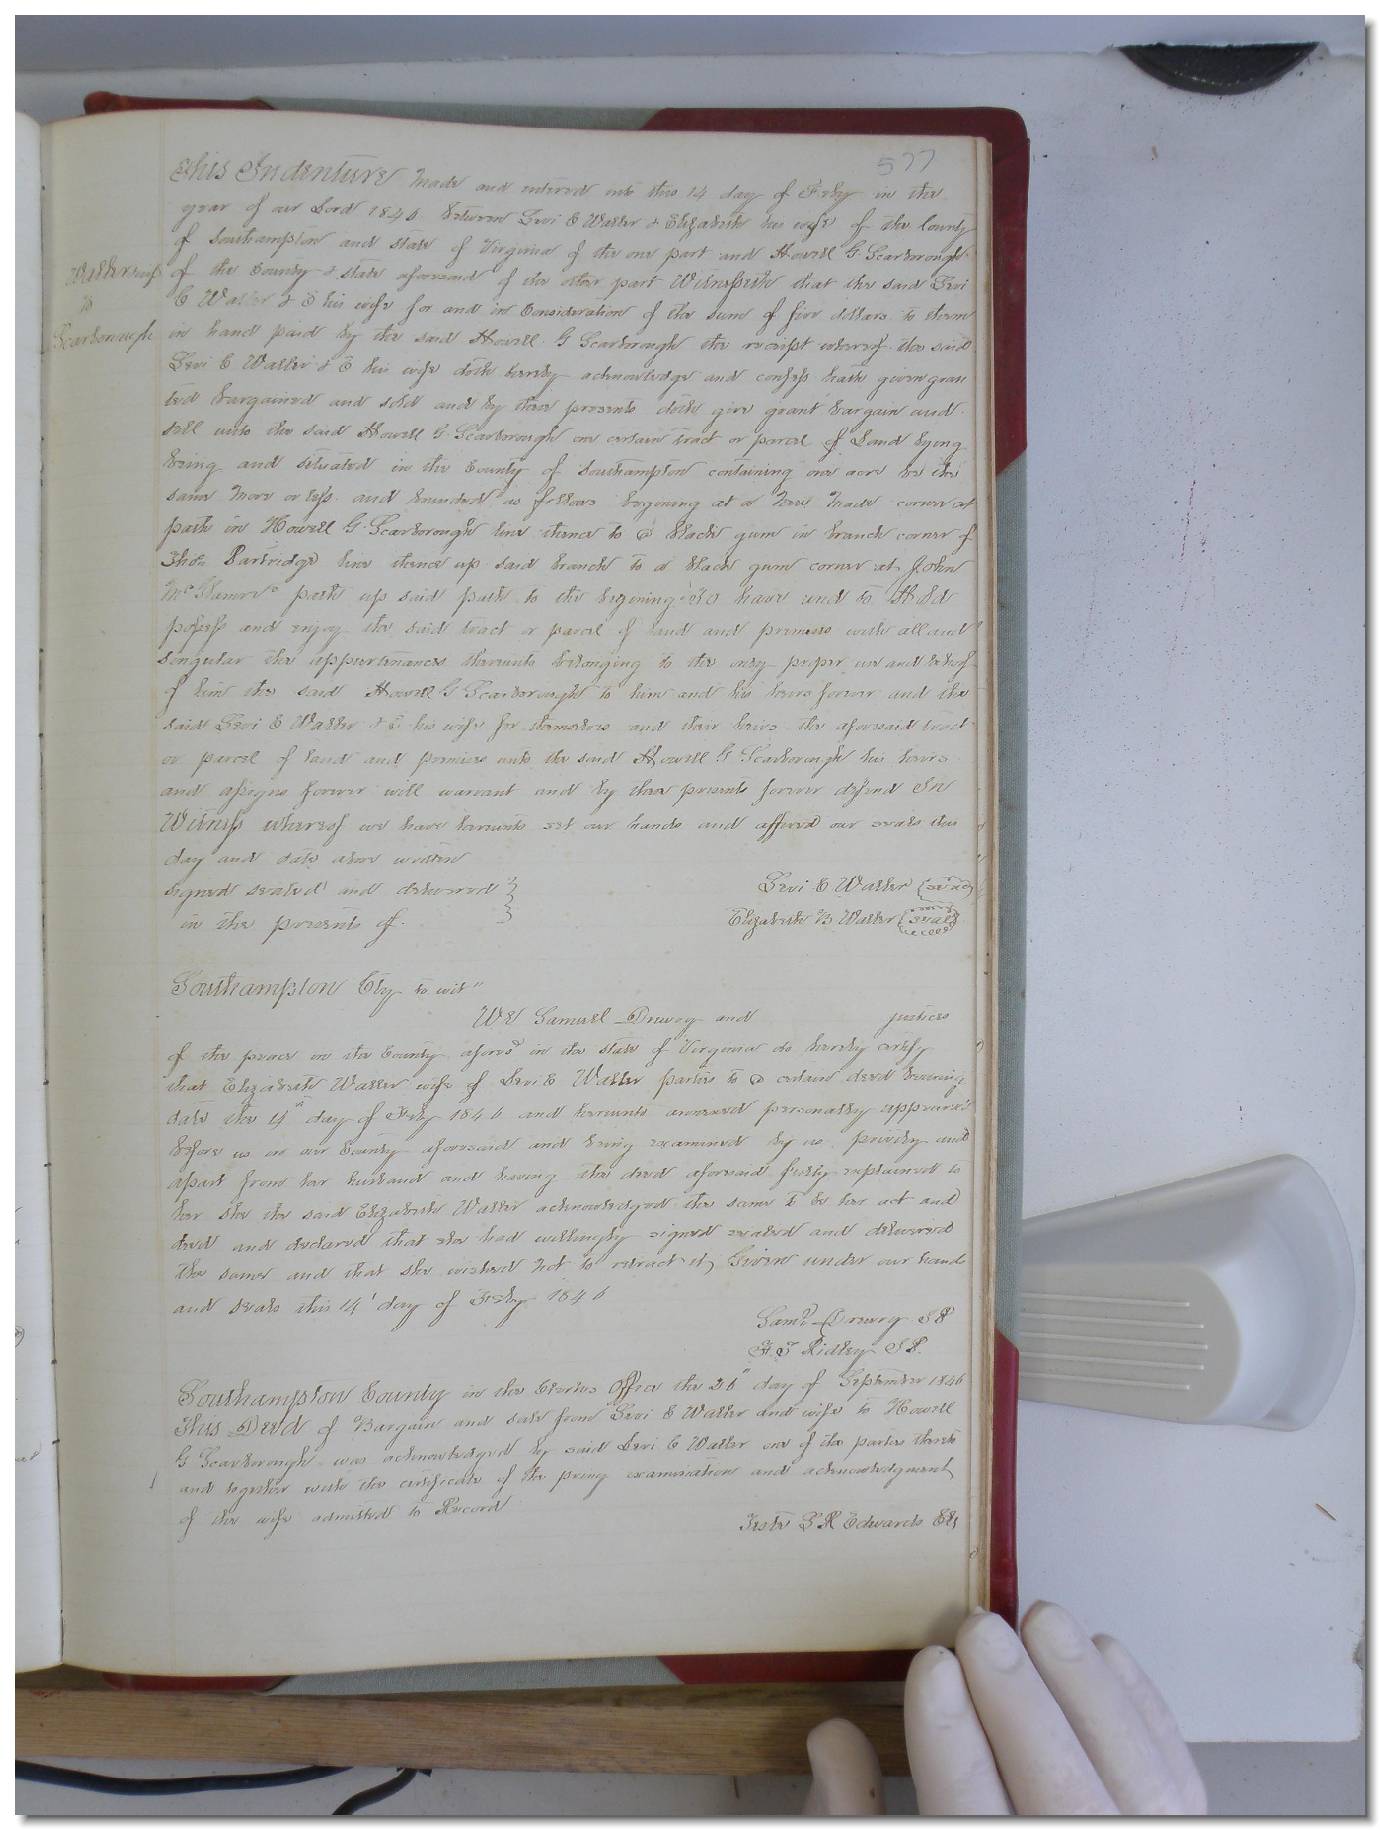 577
This Indenture made and entered into this 14 day of Feby in the
year of our Lord 1846 between Levi E Waller & Elizabeth his wife of the County
of Southampton and state of Virginia of the one part and Howell G Scarborough
Waller & wife
to
Scarborough
of the County & state aforesaid of the other part Witnesseth that the said Levi
E Waller & E his wife for and in Consideration of the sum of five dollars to them
in hand paid by the said Howell G Scarborough the receipt whereof the said
Levi E Waller & E his wife doth hereby acknowledge and confess hath given gran
ted bargained and sold and by these presents doth give grant bargain and
sell unto the said Howell G Scarborough one certain tract or parcel of Land lying
being and situated in the County of Southampton containing one acre be the
same more or less and bounded as follows begining at a new made corner at
path in Howell G Scarborough line thence to a black gum in branch corner of
Thos Partridge line thence up said branch to a black gum corner at John
path up said path to the begining To have and to Hold
possess and enjoy the said tract or parcel of land and premises with all and
singular the appurtenances thereunto belonging to the only proper use and behoof
of him the said Howell G Scarborough to him and his heirs forever and the
said Levi E Waller & E his wife for themselves and their heirs the aforesaid tract
or parcel of land and premises unto the said Howell G Scarborough his heirs
and assigns forever will warrant and by these presents forever defend In
Witness whereof we have hereunto set our hands and affixed our seals this
day and date above written
signed sealed and delivered
in the presents of
Levi E Waller (seal)
Elizabeth B Waller (seal)
Southampton Cty to wit"
We Samuel Drewry and justices
of the peace in the County aforesd in the state of Virginia do hereby certify
that Elizabeth Waller wife of Levi E Waller parties to a certain deed bearing
date the 14" day of Feby 1846 and hereunto annexed personally appeared
before us in our County aforesaid and being examined by us privily and
apart from her husband and having the deed aforesaid fully explained to
her she the said Elizabeth Waller acknowledged the same to be her act and
deed and declared that she had willingly signed sealed and delivered
the same and that she wished not to retract it, Given under our hands
and seals this 14 day of Feby 1846
Saml Drewry JP
F. T Ridley JP.
Southampton County in the Clerks Office the 26" day of September 1846
This Deed of Bargain and sale from Levi E Waller and wife to Howell
G Scarborough was acknowledged by said Levi E Waller one of the parties thereto
and together with the certificate of the privy examination and acknowledgment
of the wife admitted to Record
Teste L R Edwards Clk